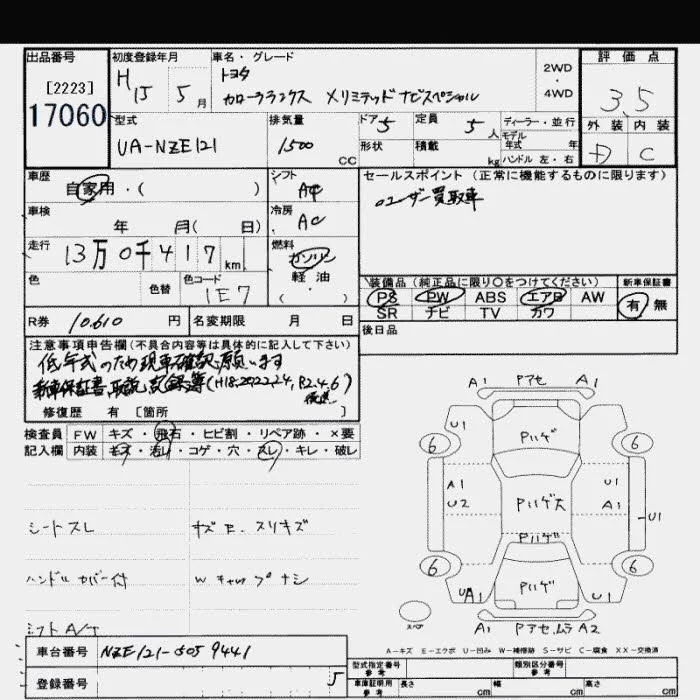 出品番号
[2223]
17060
初度登録年月
H15 5月
車名・グレード
トヨタ
カローラランクス Xリミテッドナビスペシャル
2WD
・
4WD
評価点
3.5
外装 内装
D C
型式
UA-NZE121
排気量
1500
CC
ドア 5
定員 5人
ディーラー・並行
モデル
年式 年
形状
積載 kg
ハンドル 左・右
車歴
自家用・( )
シフト
AT
セールスポイント(正常に機能するものに限ります)
ユーザー買取車
車検
年 月( 日)
冷房
AC
走行
13万0千417km
燃料
ガソリン
軽油
( ・ )
色
色替
色コード
1E7
装備品(純正品に限り○をつけてください)
新車保証書
PS PW ABS エアB AW
有 無
SR ナビ TV カワ
R券 10,610 円
名変期限 月 日
後日品
注意事項申告欄(不具合内容等は具体的に記入して下さい)
低年式のため現車確認願います
新車保証書、取説、記録簿(H18,20,22,24,R2,4,6)
後送
修復歴 有 [箇所 ]
検査員 FW キズ・飛石・ヒビ割・リペア跡・×要
記入欄 内装 キズ・汚れ・コゲ・穴・スレ・キレ・破レ
シートスレ
キズE.スリキズ
ハンドルカバー付
Wキャップナシ
シフトA/T
A1 Pアセ A1
U1 Pハゲ
6 6
A1 U1
U2 Pハゲ大 A1 U1
Pハゲ
6 6
UA1 Pハゲ U1
スペア
A1 Pアセ.ムラ A2
A−キズ E−エクボ U−凹み W−補修跡 S−サビ C−腐食 XX−交換済
車台番号 NZE121-5059441
登録番号 5
型式指定番号
参考
類別区分番号
参考
車庫証明用
参考
長さ cm
幅 cm
高さ cm